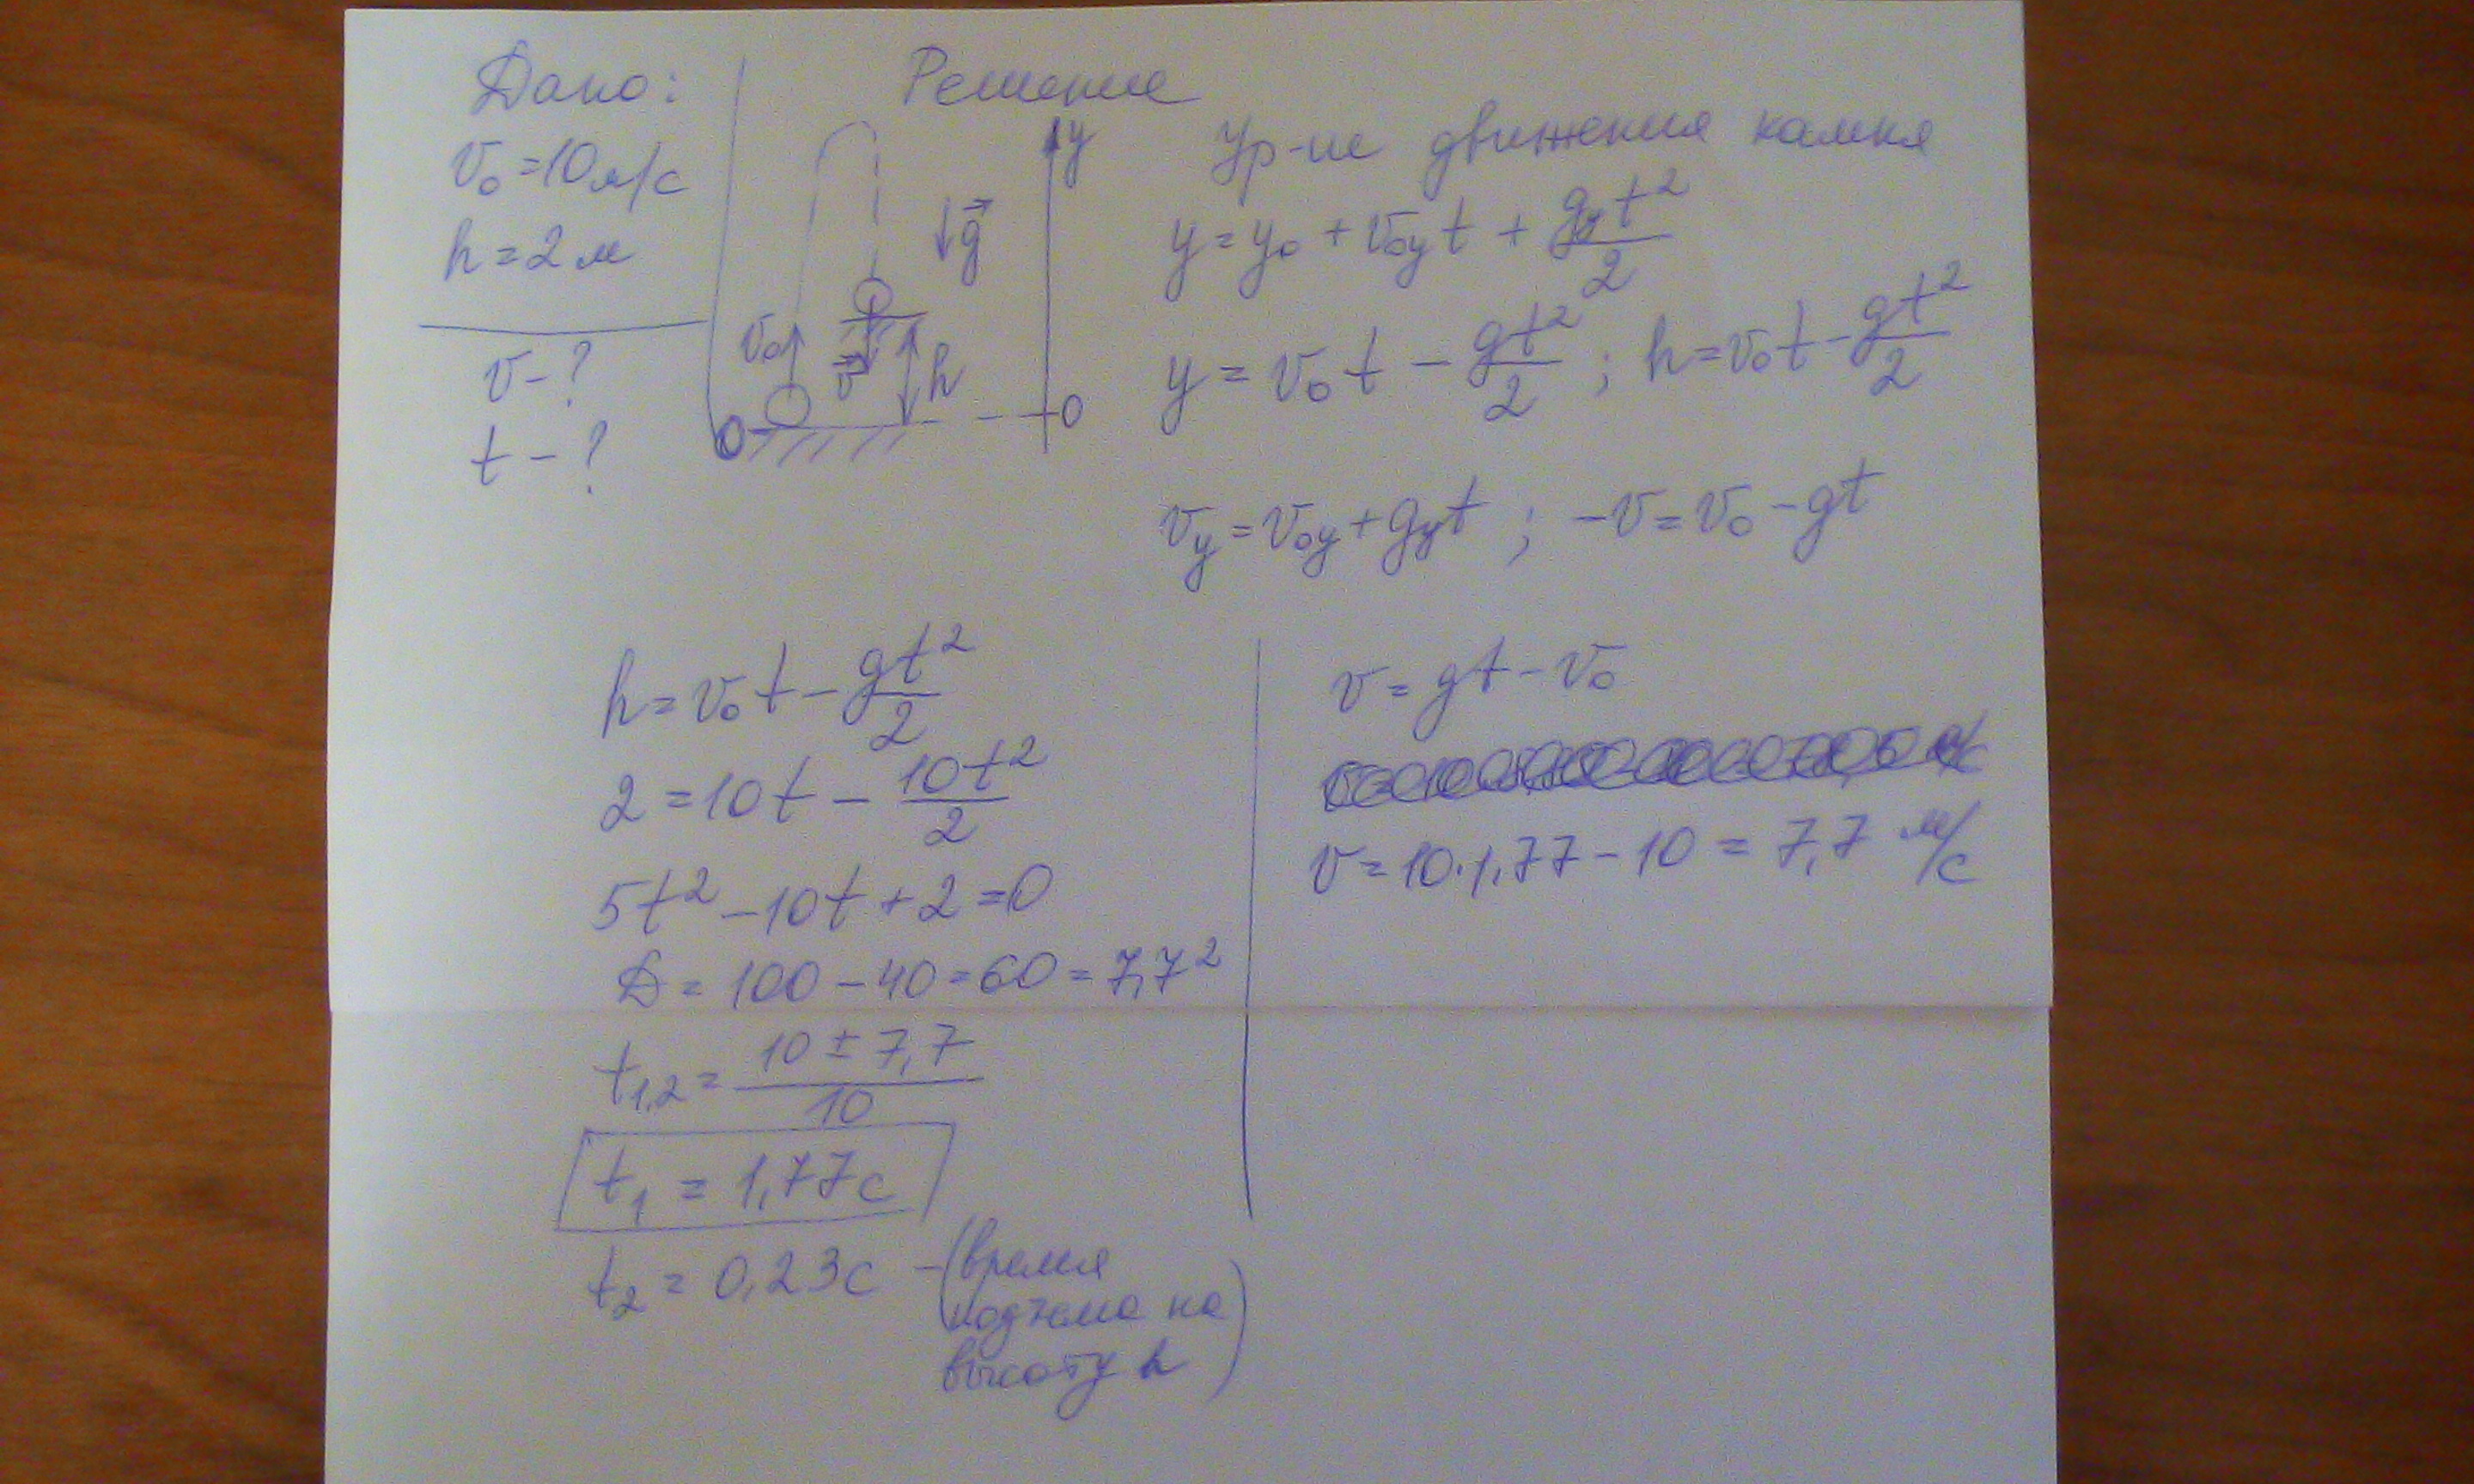 Дано:
v₀ = 10 м/с
h = 2 м
v - ?
t - ?
Решение
y
g
v₀
v
h
0
0
Ур-ие движения камня
y = y₀ + v₀yt + gyt²/2
y = v₀t - gt²/2 ; h = v₀t - gt²/2
vy = v₀y + gyt ; -v = v₀ - gt
h = v₀t - gt²/2
2 = 10t - 10t²/2
5t² - 10t + 2 = 0
D = 100 - 40 = 60 = 7,7²
t₁,₂ = 10 ± 7,7/10
t₁ = 1,77с
t₂ = 0,23с - (время
подъема на
высоту h)
v = gt - v₀
v = 10·1,77 - 10 = 7,7 м/с